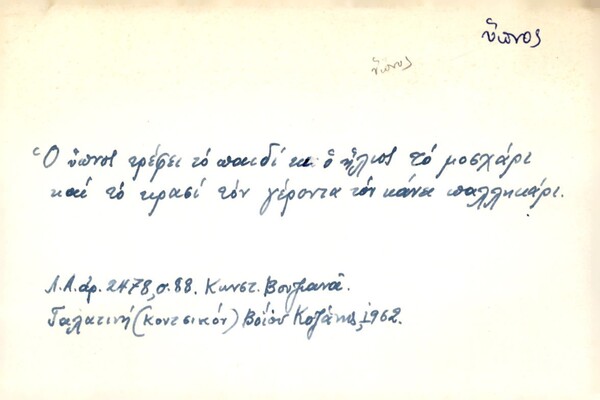 ὕπνος
ὕπνος
Ὁ ὕπνος τρέφει τό παιδί κι ὁ ἥλιος τό μοσχάρι
καί τό κρασί τόν γέροντα τόν κάνει παλληκάρι.
Λ.Α. ἀρ. 2478, σ. 88. Κωνστ.
Γαλατινή (Κοντσικόν) Βοΐου Κοζάνης, 1962.